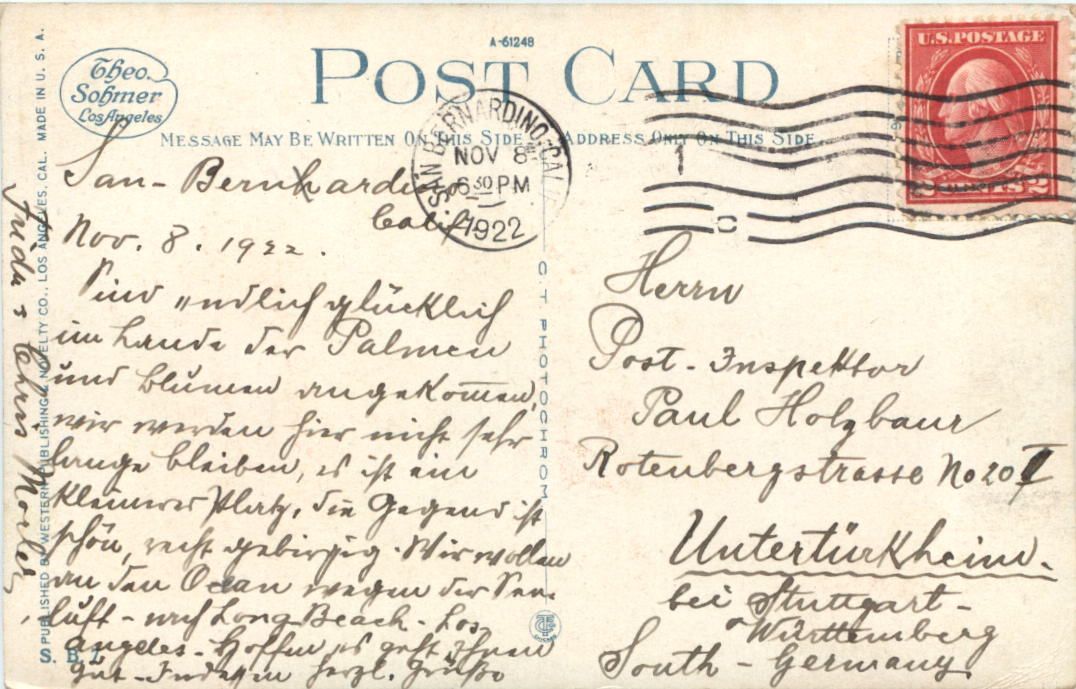 A-61248
Theo.
Sohmer
Los Angeles
POST CARD
U.S. POSTAGE
MESSAGE MAY BE WRITTEN ON THIS SIDE
ADDRESS ONLY ON THIS SIDE
SAN BERNARDINO, CALIF.
NOV 8
6 30 PM
1922
1
C
2 CENTS 2
San-Bernhardino
Calif.
Nov. 8. 1922.
Sind endlich glücklich
im Lande der Palmen
und Blumen angekom̅en,
wir werden hier nicht sehr
lange bleiben, es ist ein
kleinerer Platz, die Gegend ist
schön, recht gebirgig. Wir wollen
an den Ocean wegen der See-
luft - nach Long Beach - Los
Angeles - Hoffen es geht Ihnen
gut - Indessen herzl. Grüße
Herrn
Post-Inspektor
Paul Holzbaur
Rotenbergstrasse No 20 I
Untertürkheim.
bei Stuttgart-
Württemberg
South-Germany
C. T. PHOTOCHROM
PUBLISHED BY WESTERN PUBLISHING & NOVELTY CO., LOS ANGELES, CAL. MADE IN U. S. A.
S. B. L